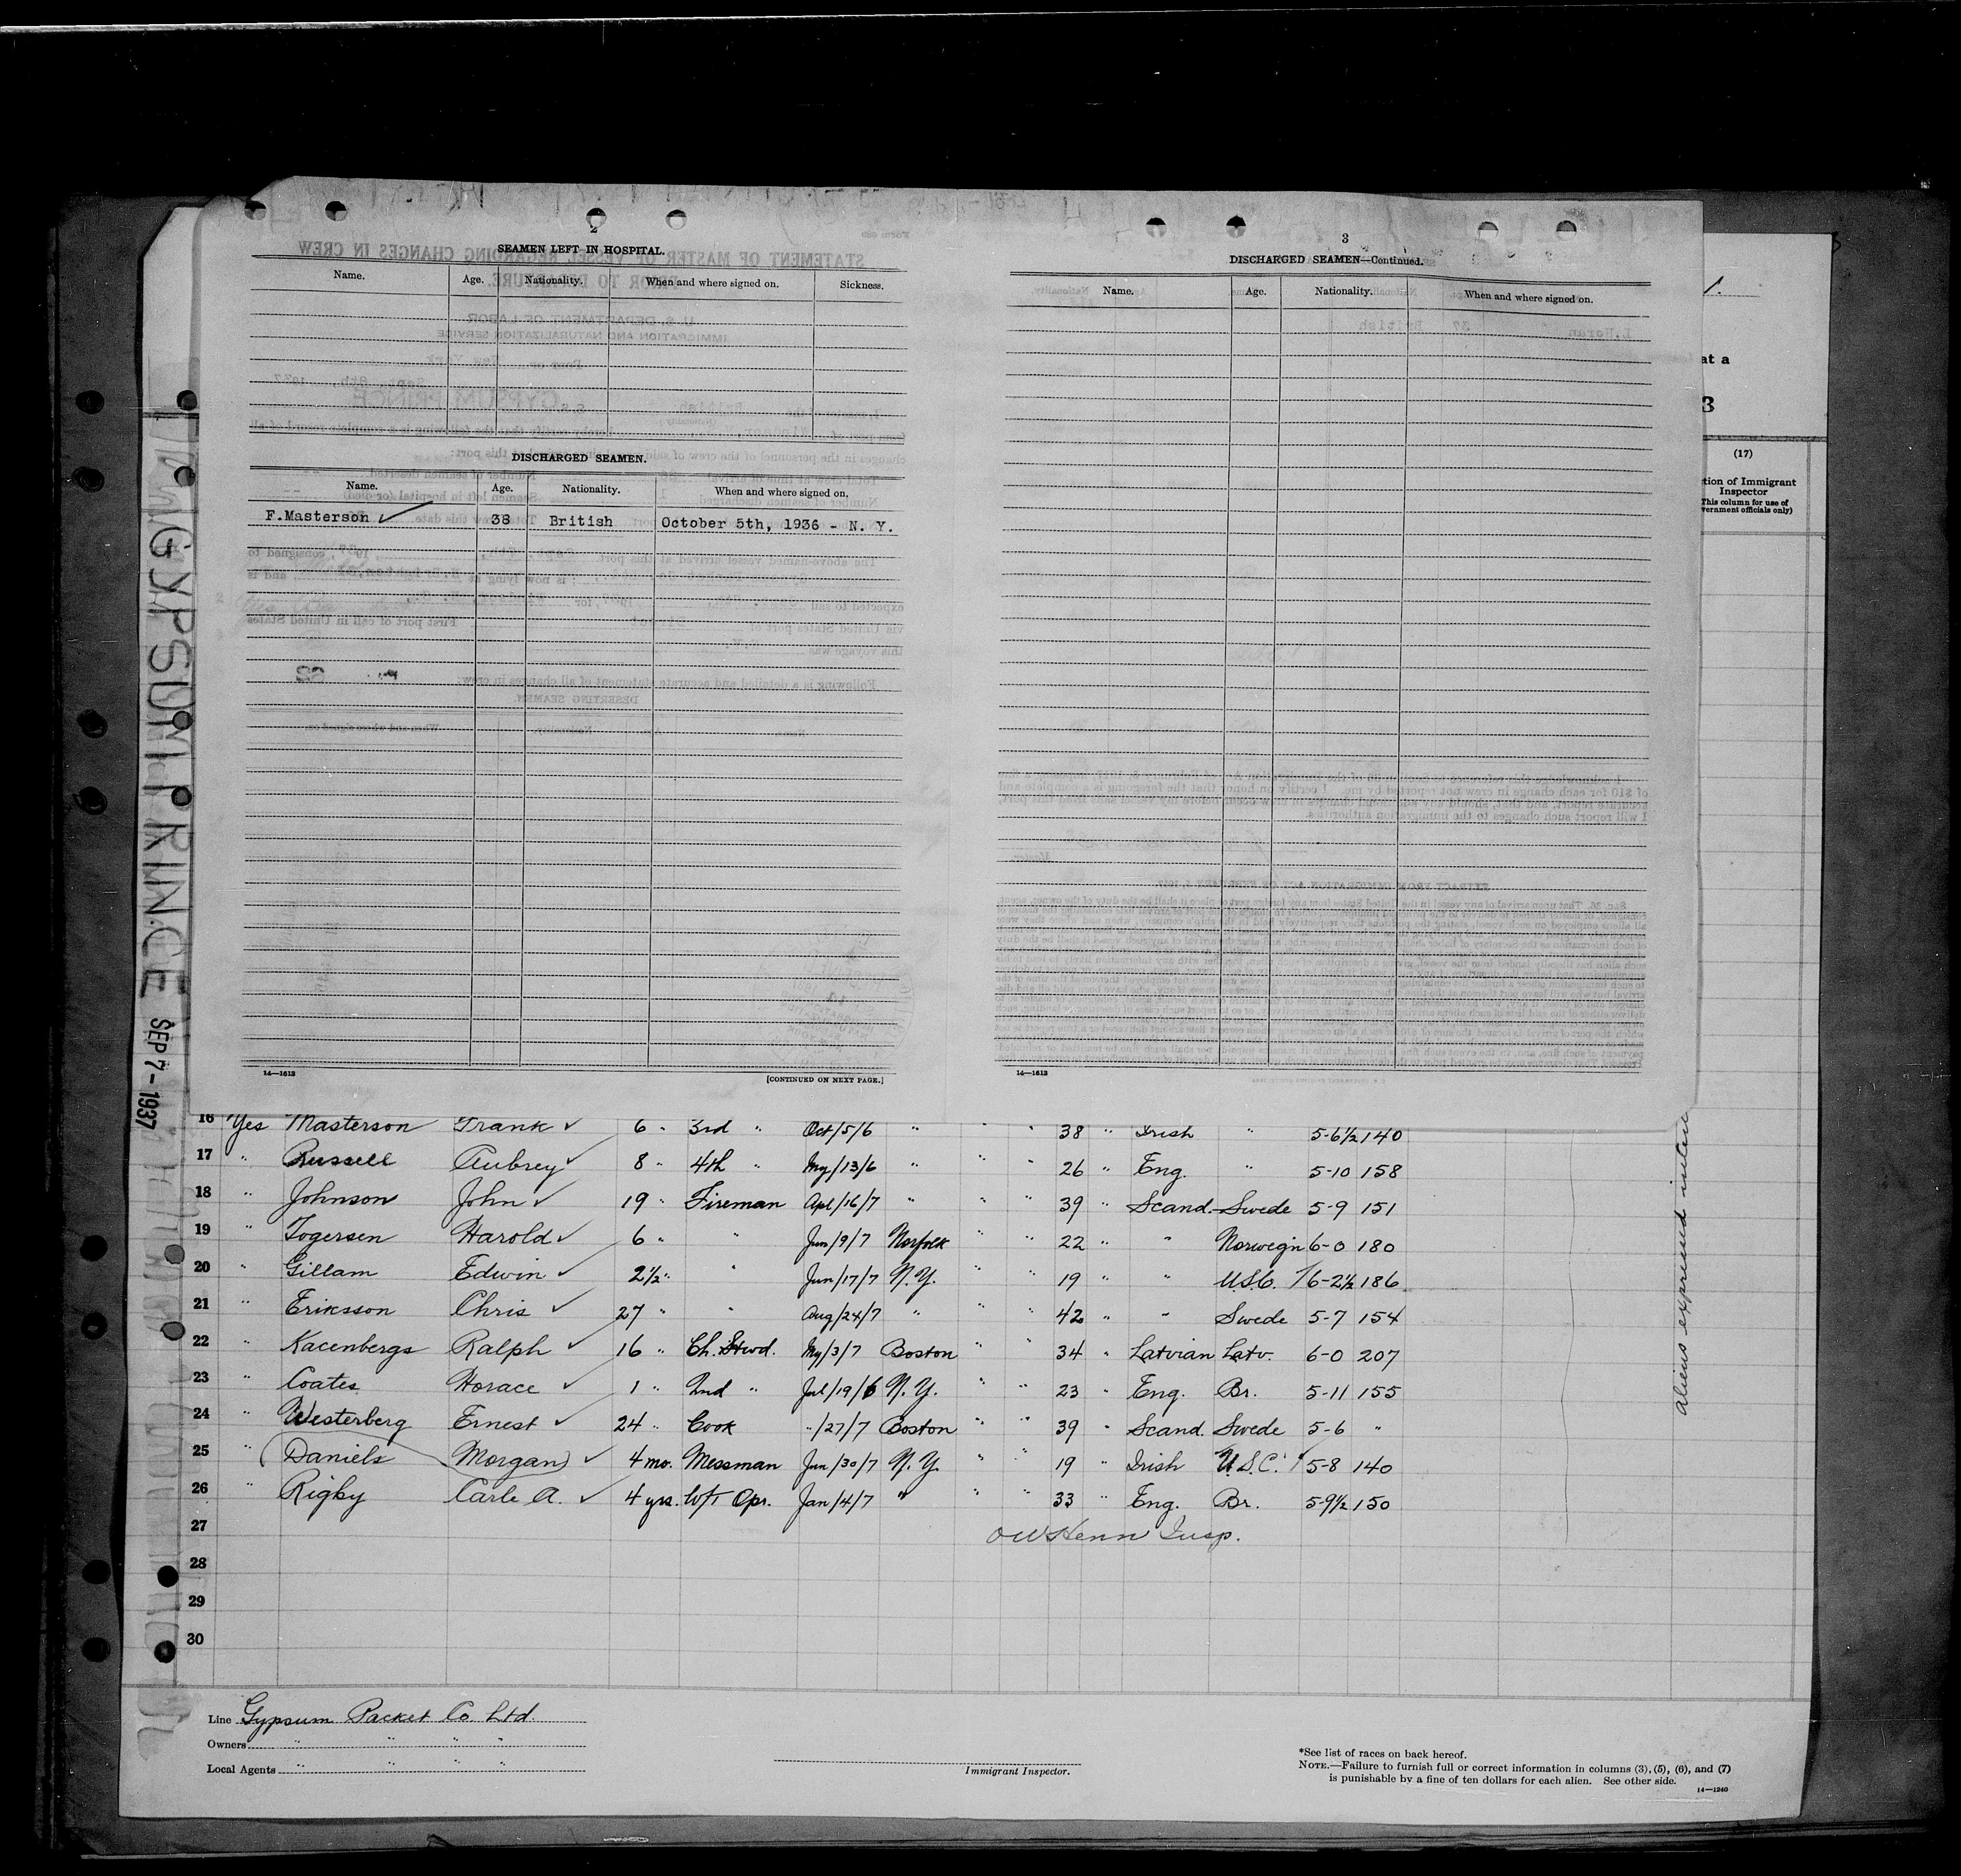 2
SEAMEN LEFT IN HOSPITAL.
Name. Age. Nationality. When and where signed on. Sickness.
DISCHARGED SEAMEN.
Name. Age. Nationality. When and where signed on.
F.Masterson ✓ 38 British October 5th, 1936 - N. Y.
14—1613
[CONTINUED ON NEXT PAGE.]
3
DISCHARGED SEAMEN—Continued.
Name. Age. Nationality. When and where signed on.
14—1613
GYPSUM PRINCE SEP 7 - 1937
1.
at a
3
(17)
tion of Immigrant
Inspector
This column for use of
vernment officials only)
16 Yes Masterson Frank ✓ 6 " 3rd " Oct/5/6 " " " 38 " Irish " 5-6½ 140
17 " Russell Aubrey ✓ 8 " 4th " My/13/6 " " " 26 " Eng. " 5-10 158
18 " Johnson John ✓ 19 " Fireman Apl/16/7 " " " 39 " Scand. Swede 5-9 151
19 " Togersen Harold ✓ 6 " " Jun/9/7 Norfolk " " 22 " " Norwegn 6-0 180
20 " Gillam Edwin ✓ 2½ " " Jun/17/7 N.Y. " " 19 " " U.S.C. 6-2½ 186
21 " Eriksson Chris ✓ 27 " " Aug/24/7 " " " 42 " " Swede 5-7 154
22 " Kacenbergs Ralph ✓ 16 " Ch. Stwd. My/3/7 Boston " " 34 " Latvian Latv. 6-0 207
23 " Coates Horace ✓ 1 " 2nd " Jul/19/6 N.Y. " " 23 " Eng. Br. 5-11 155
24 " Westerberg Ernest ✓ 24 " Cook "/27/7 Boston " " 39 " Scand. Swede 5-6 "
25 " (Daniels Morgan) ✓ 4 mo. Messman Jun/30/7 N.Y. " " 19 " Irish U.S.C. 5-8 140
26 " Rigby Carle A. ✓ 4 yrs. W/T Opr. Jan/4/7 " " " 33 " Eng. Br. 5-9½ 150
27
OW Henn Insp.
28
29
30
aliens expressed
Line Gypsum Packet Co Ltd.
Owners " " " "
Local Agents " " " "
Immigrant Inspector.
*See list of races on back hereof.
NOTE.—Failure to furnish full or correct information in columns (3), (5), (6), and (7)
is punishable by a fine of ten dollars for each alien. See other side.
14—1240